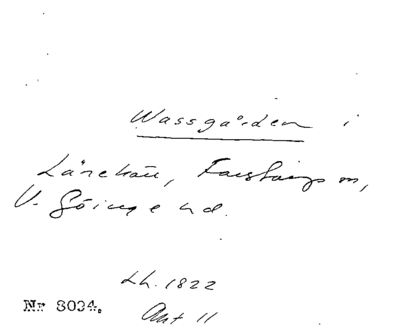 Wassgården i
Lärekäii, Farstorps sn,
V. Göinge hd.
Lh. 1822
Akt 11
Nr 8034.